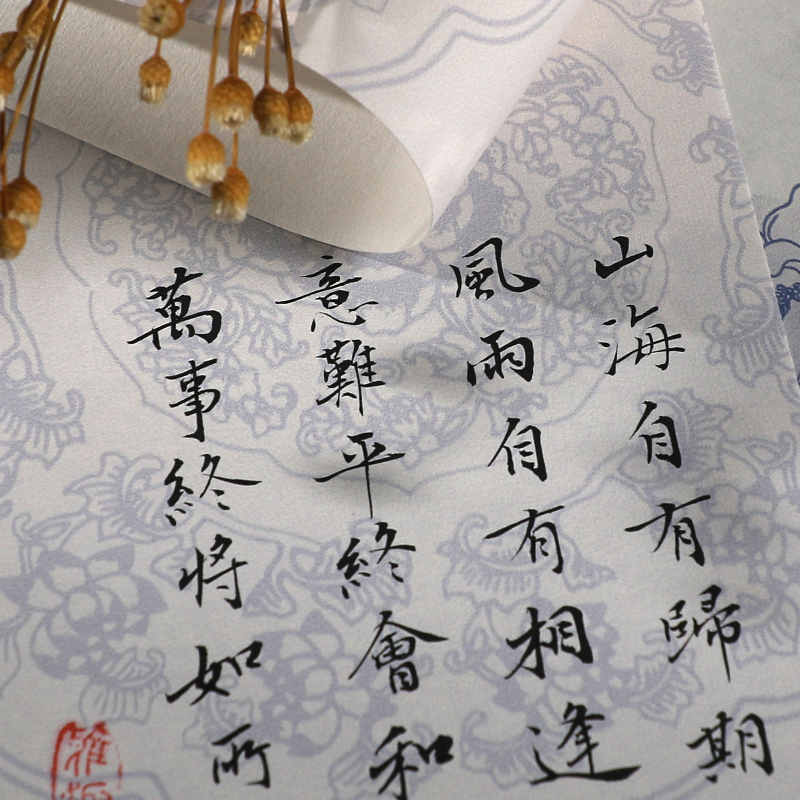 山海自有歸期
風雨自有相逢
意難平終會和
萬事終將如所